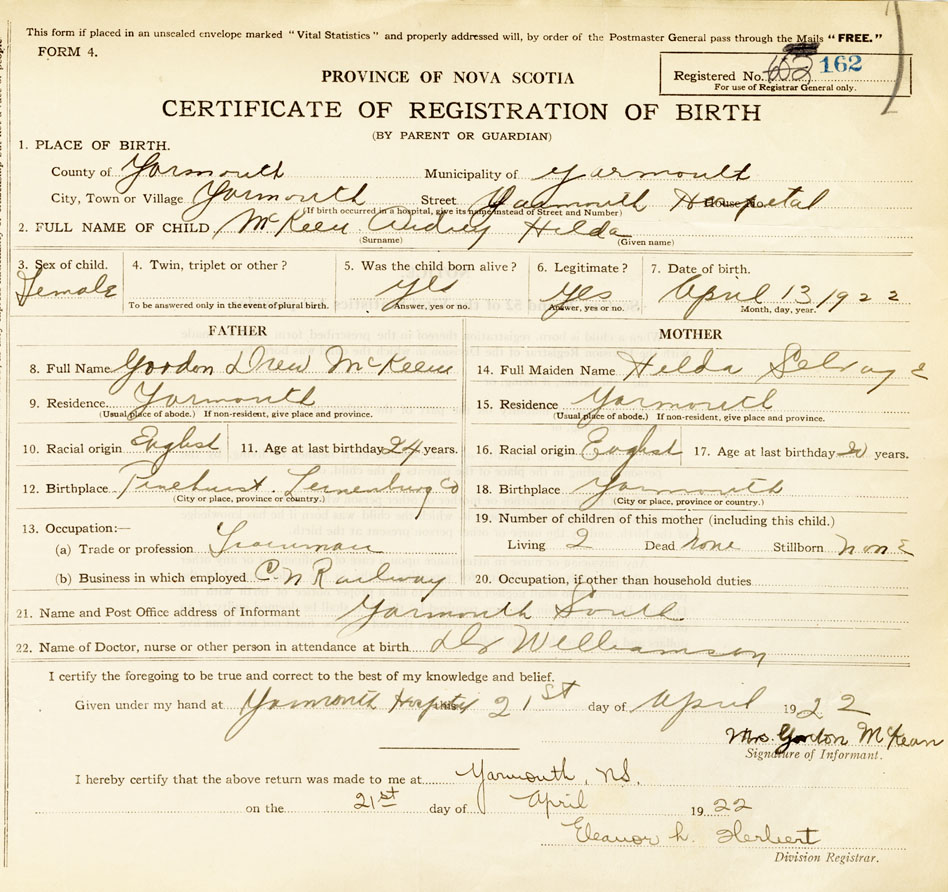 This form if placed in an unsealed envelope marked "Vital Statistics" and properly addressed will, by order of the Postmaster General pass through the Mails "FREE."
FORM 4.
PROVINCE OF NOVA SCOTIA
Registered No. 162
For use of Registrar General only.
CERTIFICATE OF REGISTRATION OF BIRTH
(BY PARENT OR GUARDIAN)
1. PLACE OF BIRTH.
County of Yarmouth Municipality of Yarmouth
City, Town or Village Yarmouth Street Yarmouth Hospital House No.
(If birth occurred in a hospital, give its name instead of Street and Number)
2. FULL NAME OF CHILD McKeen Audrey Hilda
(Surname) (Given name)
3. Sex of child. 4. Twin, triplet or other? 5. Was the child born alive? 6. Legitimate? 7. Date of birth.
Female yes yes April 13, 1922
To be answered only in the event of plural birth. Answer, yes or no. Answer, yes or no. Month, day, year.
FATHER MOTHER
8. Full Name Gordon Drew McKeen
14. Full Maiden Name Hilda
9. Residence Yarmouth
15. Residence Yarmouth
(Usual place of abode.) If non-resident, give place and province.
(Usual place of abode.) If non-resident, give place and province.
10. Racial origin English 11. Age at last birthday 24 years.
16. Racial origin English 17. Age at last birthday 20 years.
12. Birthplace Pinehurst. Lunenburg Co
18. Birthplace Yarmouth
(City or place, province or country.)
(City or place, province or country.)
13. Occupation:—
19. Number of children of this mother (including this child.)
(a) Trade or profession Trainman
Living 2 Dead none Stillborn none
(b) Business in which employed C. N Railway
20. Occupation, if other than household duties
21. Name and Post Office address of Informant Yarmouth South
22. Name of Doctor, nurse or other person in attendance at birth Dr Williamson
I certify the foregoing to be true and correct to the best of my knowledge and belief.
Given under my hand at Yarmouth Hospital this 21st day of April 1922
Mrs. Gordon McKean
Signature of Informant.
I hereby certify that the above return was made to me at Yarmouth, N.S.
on the 21st day of April 1922
Eleanor L. Herbert
Division Registrar.